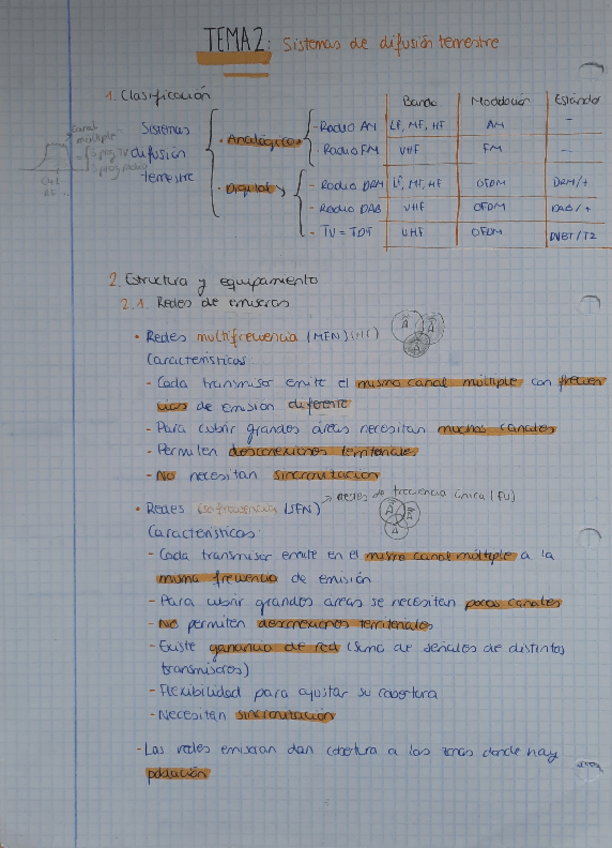 TEMA 2: Sistemas de difusión terrestre
1. Clasificación
Banda Modulación Estándar
Sistemas difusión terrestre
· Analógicos
- Radio AM LF, MF, HF AM -
- Radio FM VHF FM -
· Digitales
- Radio DRM LF, MF, HF OFDM DRM/+
- Radio DAB VHF OFDM DAB/+
- TV = TDT UHF OFDM DVBT/T2
canal
múltiple
2. Estructura y equipamiento
2.1. Redes de emisoras
• Redes multifrecuencia (MFN)
Características:
- Cada transmisor emite el mismo canal múltiple con frecuen
cias de emisión diferente
- Para cubrir grandes áreas necesitan muchos canales
- Permiten desconexiones territoriales
- No necesitan sincronización
• Redes isofrecuencia (SFN) → Redes de frecuencia única (FU)
Características:
- Cada transmisor emite en el mismo canal múltiple a la
misma frecuencia de emisión
- Para cubrir grandes áreas se necesitan pocos canales
- No permiten desconexiones territoriales
- Existe ganancia de red (Suma de señales de distintos
transmisores)
- Flexibilidad para ajustar su cobertura
- Necesitan sincronización
- Las redes emisoras dan cobertura a las zonas donde hay
población